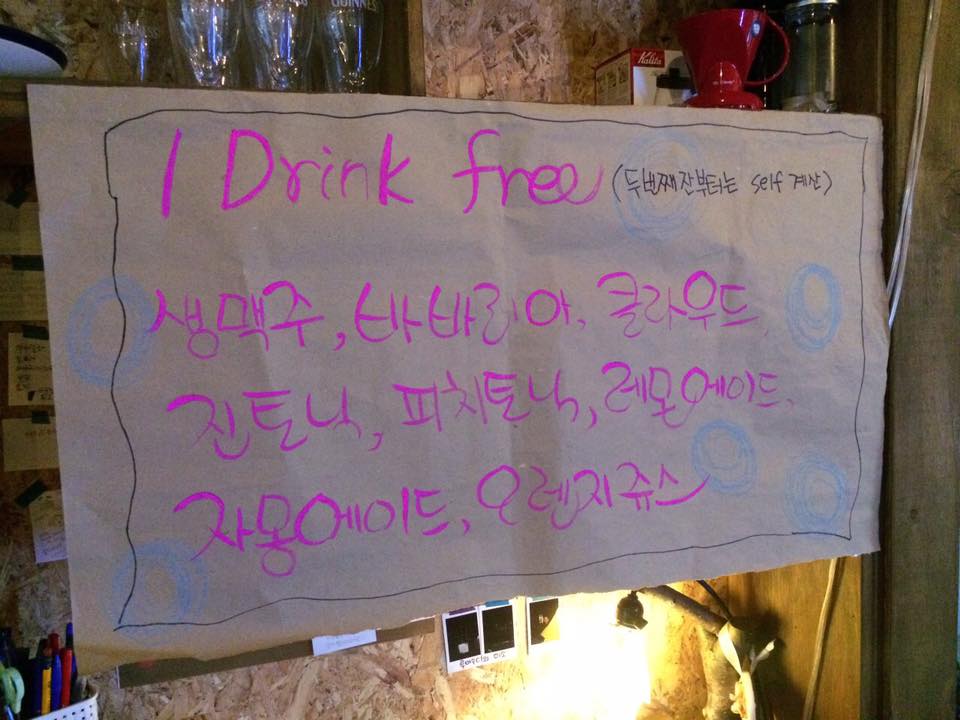 GUINNESS
Kalita
1 Drink free (두번째 잔부터는 self 계산)
생맥주, 바바리아, 클라우드,
진토닉, 피치토닉, 레몬에이드,
자몽에이드, 오렌지쥬스